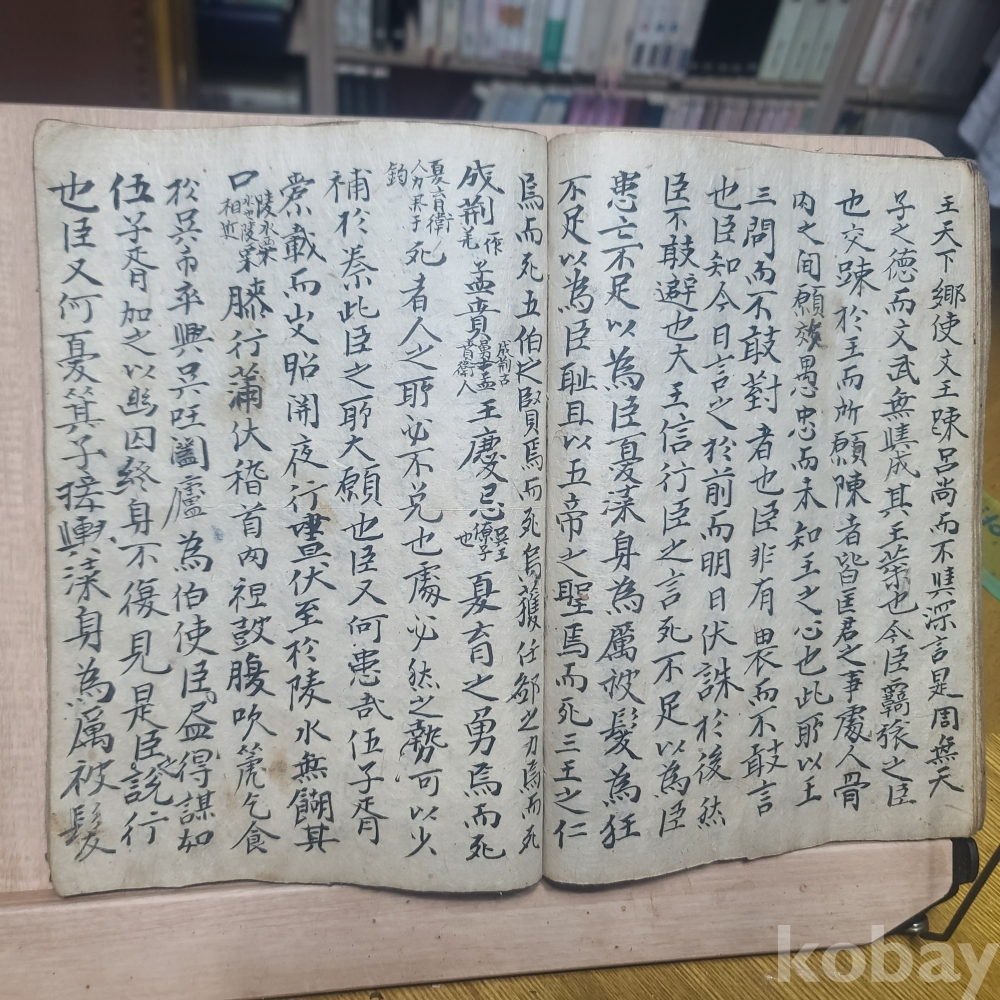 王天下鄉使文王踈呂尚而不與深言是周無天
子之德而文武無與成其王業也今臣羇旅之臣
也交踈於王而所願陳者皆匡君之事處人骨
肉之間願效愚忠而未知王之心也此所以王
三問而不敢對者也臣非有畏而不敢言
也臣知今日言之於前而明日伏誅於後然
臣不敢避也大王信行臣之言死不足以為臣
患亡不足以為臣憂漆身為厲被髮為狂
不足以為臣恥且以五帝之聖焉而死三王之仁
焉而死五伯之賢焉而死烏獲任鄙之力焉而死
成荊一作羌孟賁成荊古勇士孟賁衛人王慶忌吳王僚子也夏育之勇焉而死
夏育衛人力举千鈞死者人之所必不免也處必然之勢可以少
補於秦此臣之所大願也臣又何患哉伍子胥
橐載而出昭関夜行晝伏至於陵水無餬其
口陵水栗水也陵栗相近膝行蒲伏稽首肉袒鼓腹吹篪乞食
於吳市卒興吳國闔廬為伯使臣盡得謀如
伍子胥加之以幽囚終身不復見是臣說行
也臣又何憂箕子接輿漆身為厲被髮